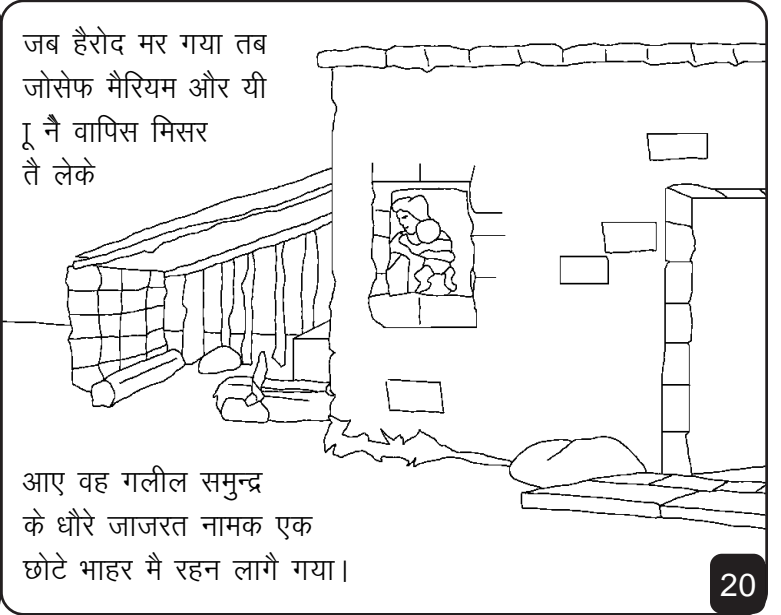 जब हैरोद मर गया तब
जोसेफ मैरियम और यी
ाू नै वापिस मिसर
तै लेके
आए वह गलील समुन्द्र
के धौरे जाजरत नामक एक
छोटे भाहर मै रहन लागै गया।
20